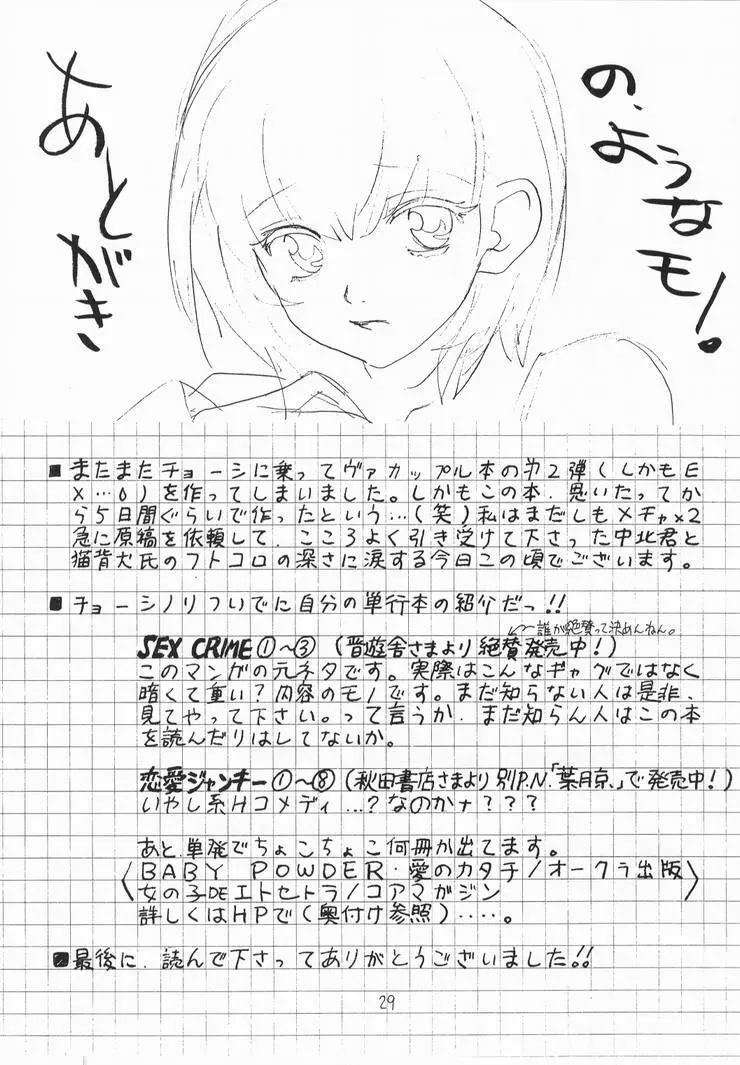 あとがき
の、ようなモノ。
■またまたチョーシに乗ってヴァカップル本の第2弾(しかもE
X…0)を作ってしまいました。しかもこの本、思いたってか
ら5日間ぐらいで作ったという…(笑)私はまだしもメチャx2
急に原稿を依頼して、こころよく引き受けて下さった中北君と
猫背犬氏のフトコロの深さに涙する今日この頃でございます。
■チョーシノリついでに自分の単行本の紹介だっ!!
誰が絶賛って決めんねん。
SEX CRIME①〜③(晋遊舎さまより絶賛発売中!)
このマンガの元ネタです。実際はこんなギャグではなく
暗くて重い?内容のモノです。まだ知らない人は是非、
見てやって下さい。って言うか、まだ知らん人はこの本
を読んだりはしてないか。
恋愛ジャンキー①〜⑧(秋田書店さまより別P.N.「葉月京、」で発売中!)
いやし系Hコメディ…?なのかナ???
あと、単発でちょこちょこ何冊か出てます。
〈BABY POWDER・愛のカタチ/オークラ出版
女の子DEエトセトラ/コアマガジン〉
詳しくはHPで(奥付け参照)‥‥。
■最後に、読んで下さってありがとうございました!!
29